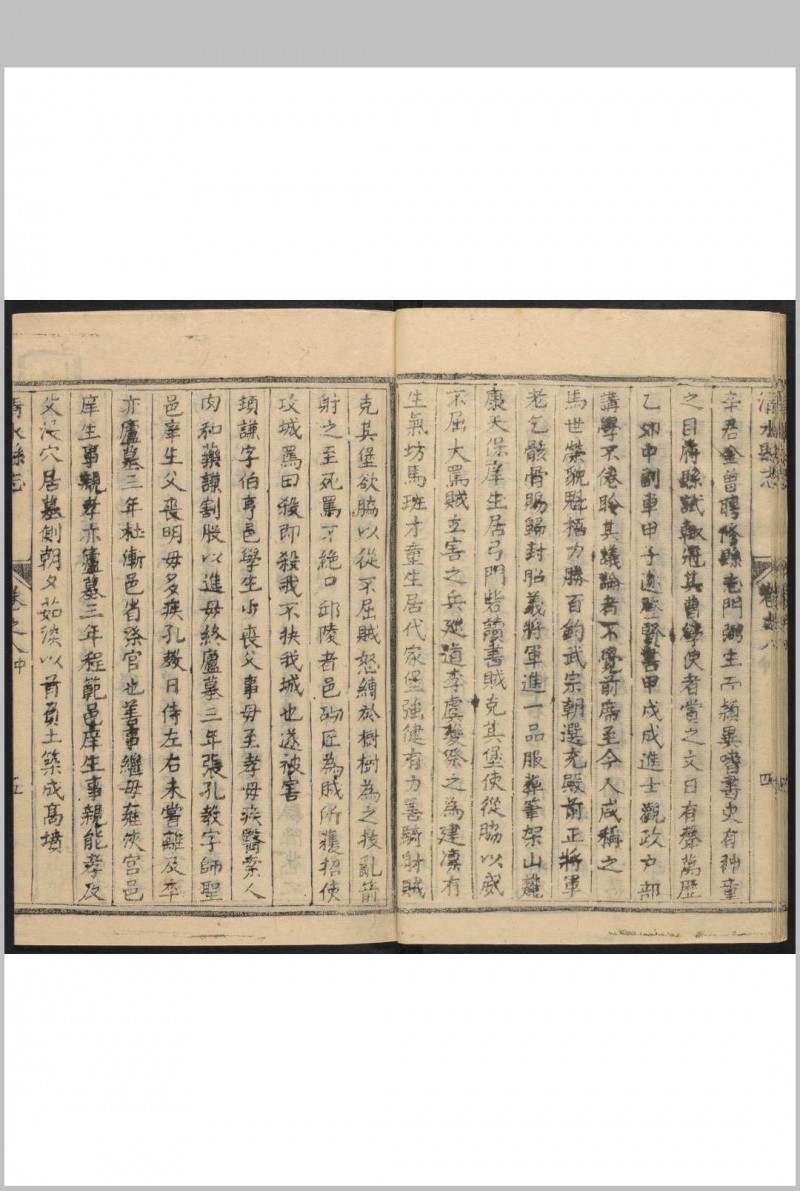 清水縣志 卷之八 四
辛君金曾聘修縣志門弼生而穎異嗜書史有神童
之目府縣試輒冠其曹學使者賞之文日有聲萬曆
乙卯中副車甲子遂登賢書甲戌成進士觀政户部
講學不倦聆其議論者不覺前席至今人咸稱之
馬世榮貌魁梧力勝百鈞武宗朝選充殿前正將軍
老乞骸骨賜歸封昭義將軍進一品服葬筆架山麓
康天保庠生居弓門砦讀書賊克其堡使從脇以威
不屈大罵賊立害之兵廵道李虞夔祭之為建凜有
生氣坊馬班才童生居代家堡強健有力善騎射賊
克其堡欲脇以從不屈賊怒縛於樹樹為之拔亂箭
射之至死罵不絶口邱陵者邑砌匠為賊所獲招使
攻城罵曰殺即殺我不扶我城也遂被害
項謙字伯亨邑學生少喪父事母至孝母疾醫索人
肉和藥謙割股以進母終廬墓三年張孔教字師聖
邑庠生父喪明母多疾孔教日侍左右未嘗離及卒
亦廬墓三年杜漸邑省祭官也善事繼母薤俠宫邑
庠生事親孝亦廬墓三年程範邑庠生事親能孝及
父沒穴居墓側朝夕茹淡以首負土築成高墳
清水縣志 卷之八中 五